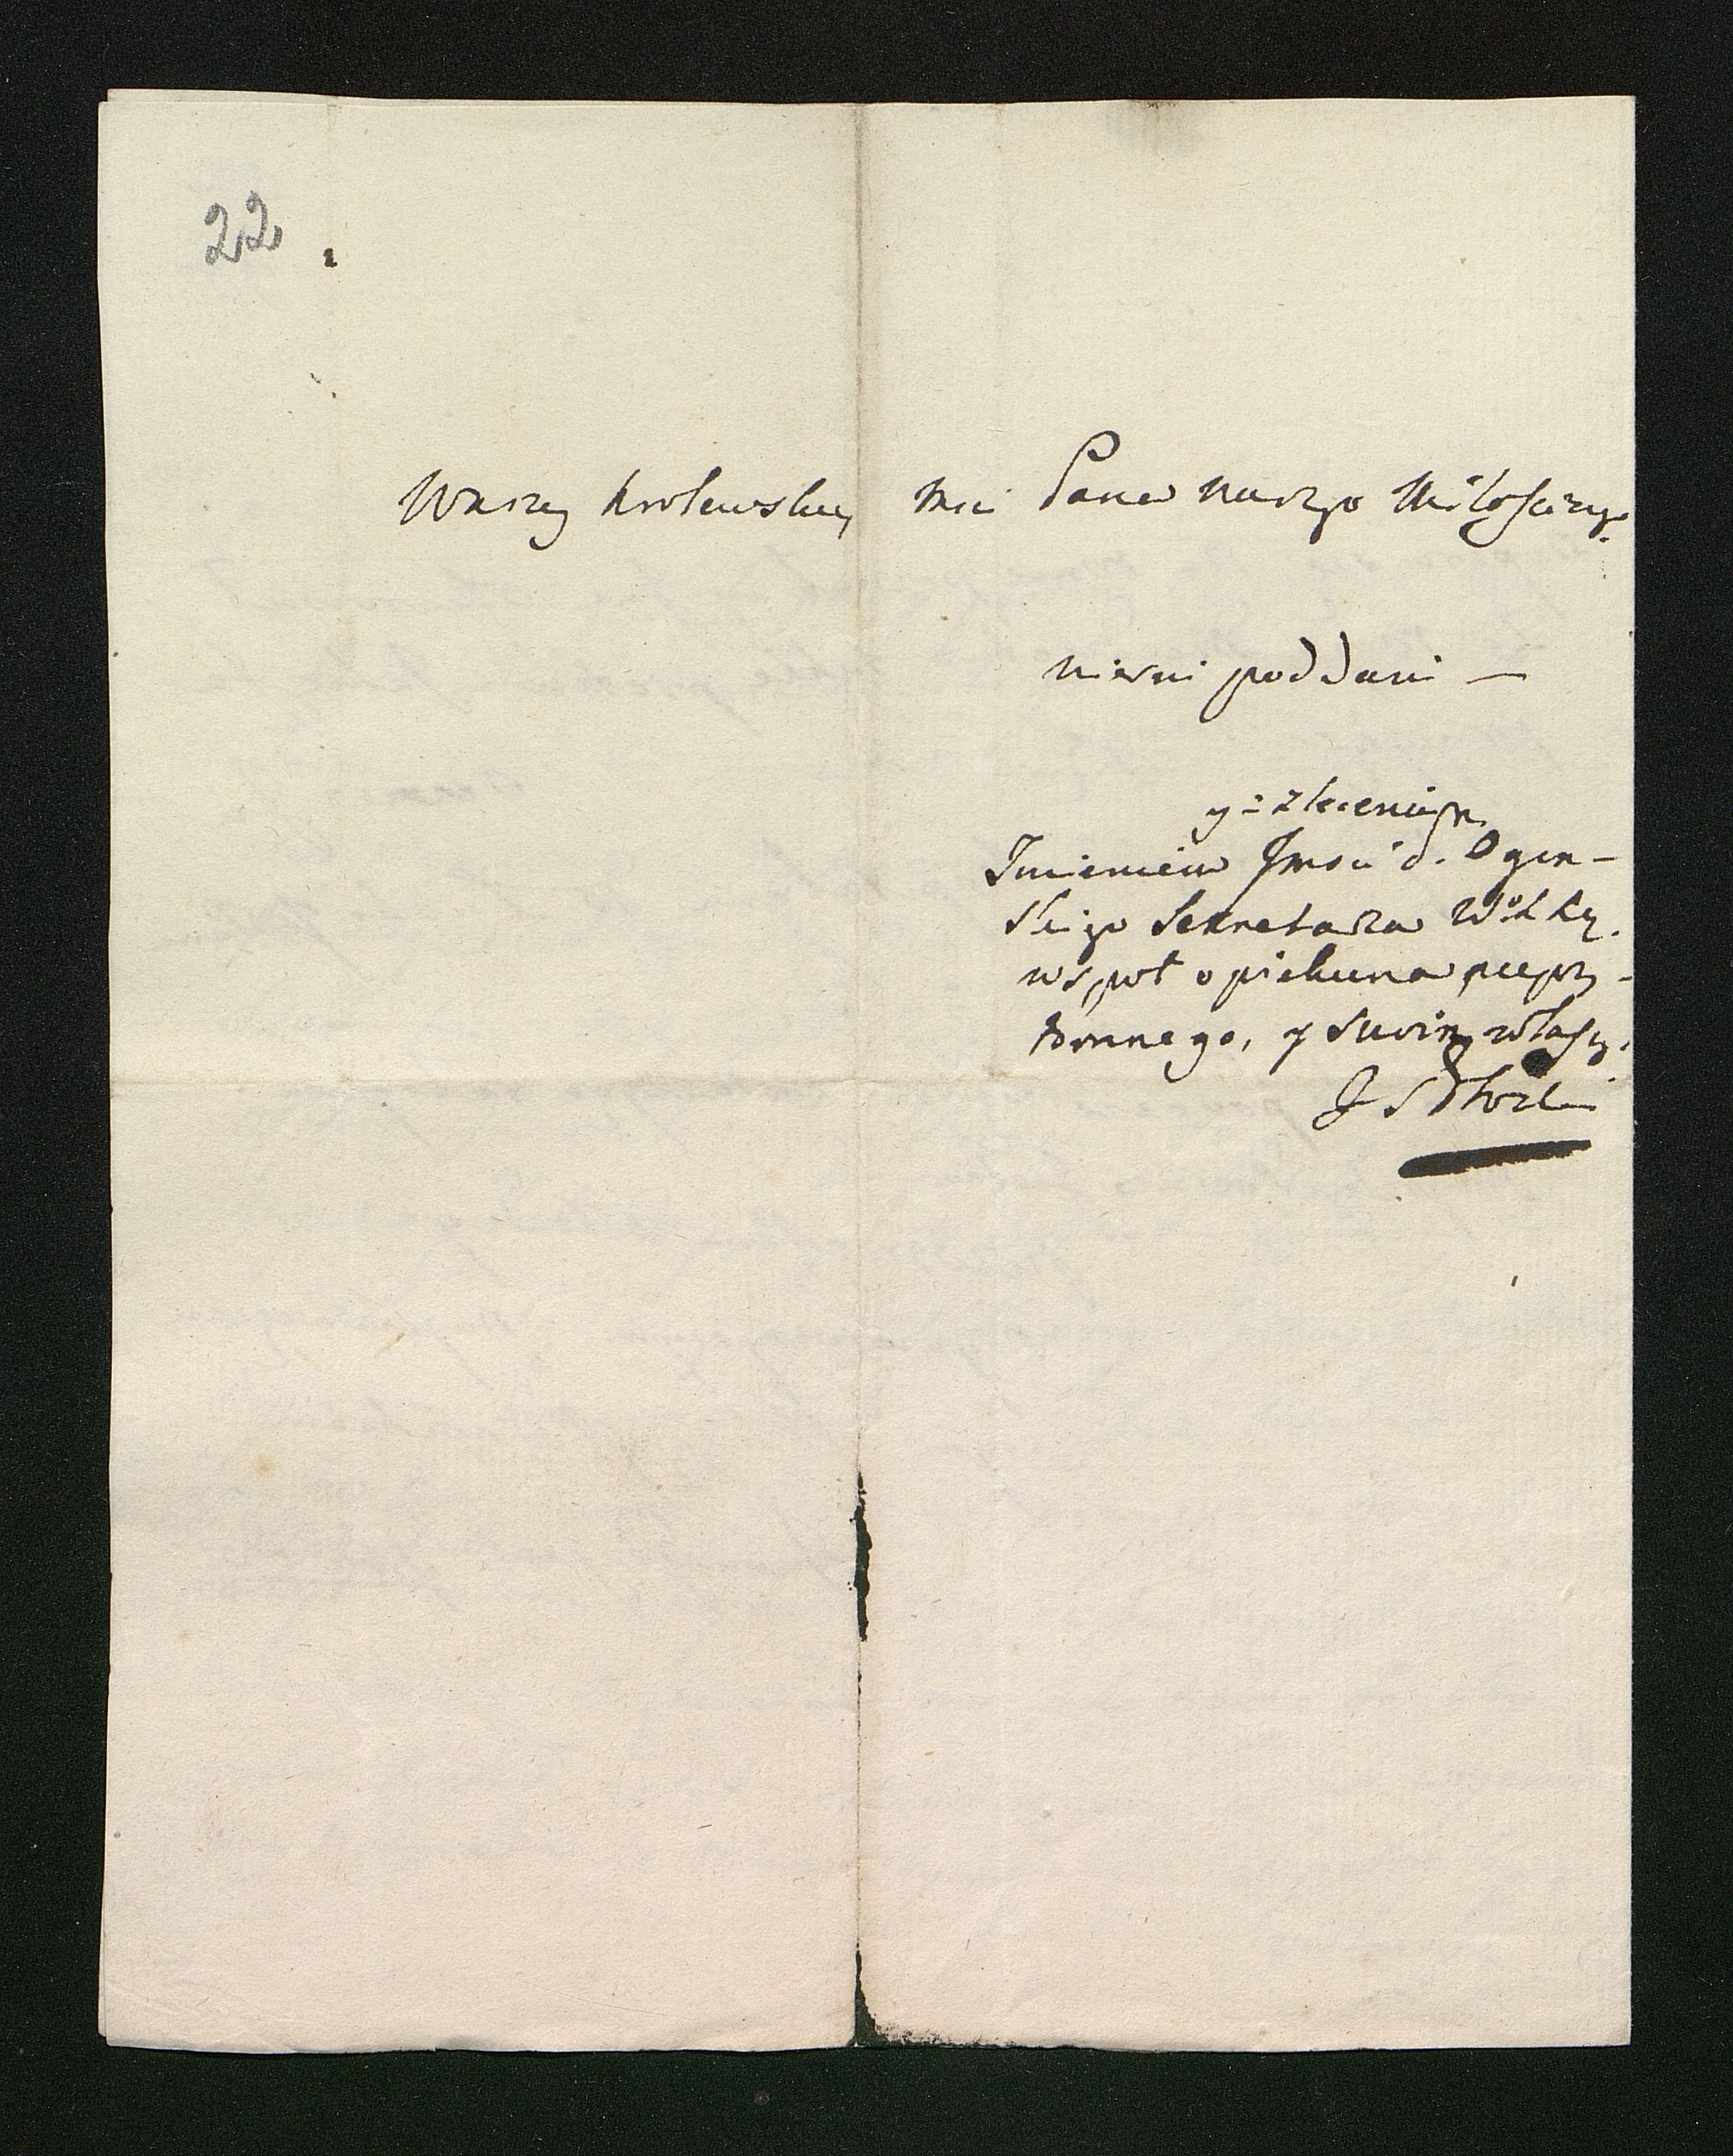 22
Waszey Krolewskiey Mci Pana naszego Miłościwego
wierni poddani —
y z zlecenia
Imieniem Jmści P. Ogin-
skiego Sekretarza W. Lit.
wspoł opiekuna nieprzy-
tomnego, y swoim własn.